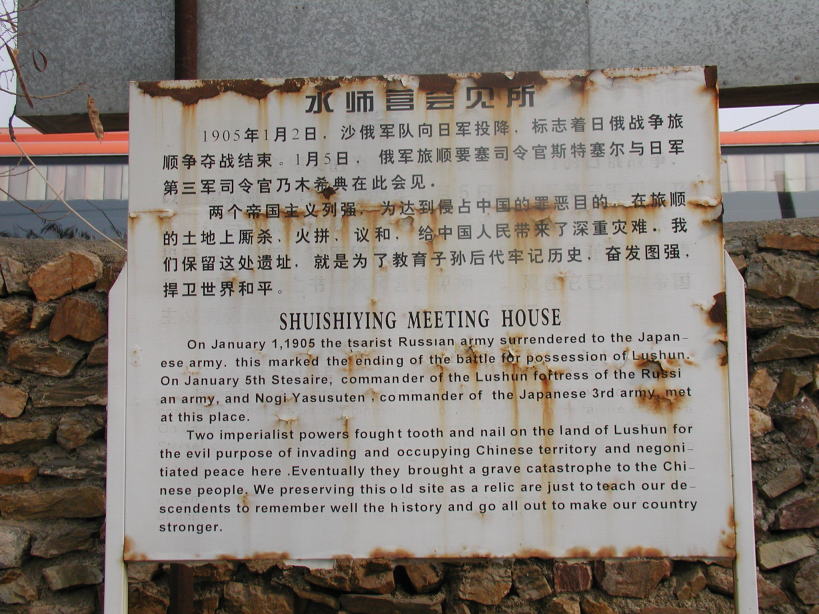 水师营会见所
1905年1月2日，沙俄军队向日军投降，标志着日俄战争旅
顺争夺战结束。1月5日，俄军旅顺要塞司令官斯特塞尔与日军
第三军司令官乃木希典在此会见。
两个帝国主义列强，为达到侵占中国的罪恶目的，在旅顺
的土地上厮杀、火拼、议和，给中国人民带来了深重灾难。我
们保留这处遗址，就是为了教育子孙后代牢记历史，奋发图强，
捍卫世界和平。
SHUISHIYING MEETING HOUSE
On January 1,1905 the tsarist Russian army surrendered to the Japan-
ese army. this marked the ending of the battle for possession of Lushun.
On January 5th Stesaire, commander of the Lushun fortress of the Russi
an army, and Nogi Yasusuten, commander of the Japanese 3rd army, met
at this place.
Two imperialist powers fought tooth and nail on the land of Lushun for
the evil purpose of invading and occupying Chinese territory and negoni-
tiated peace here .Eventually they brought a grave catastrophe to the Chi-
nese people. We preserving this old site as a relic are just to teach our de-
scendents to remember well the history and go all out to make our country
stronger.